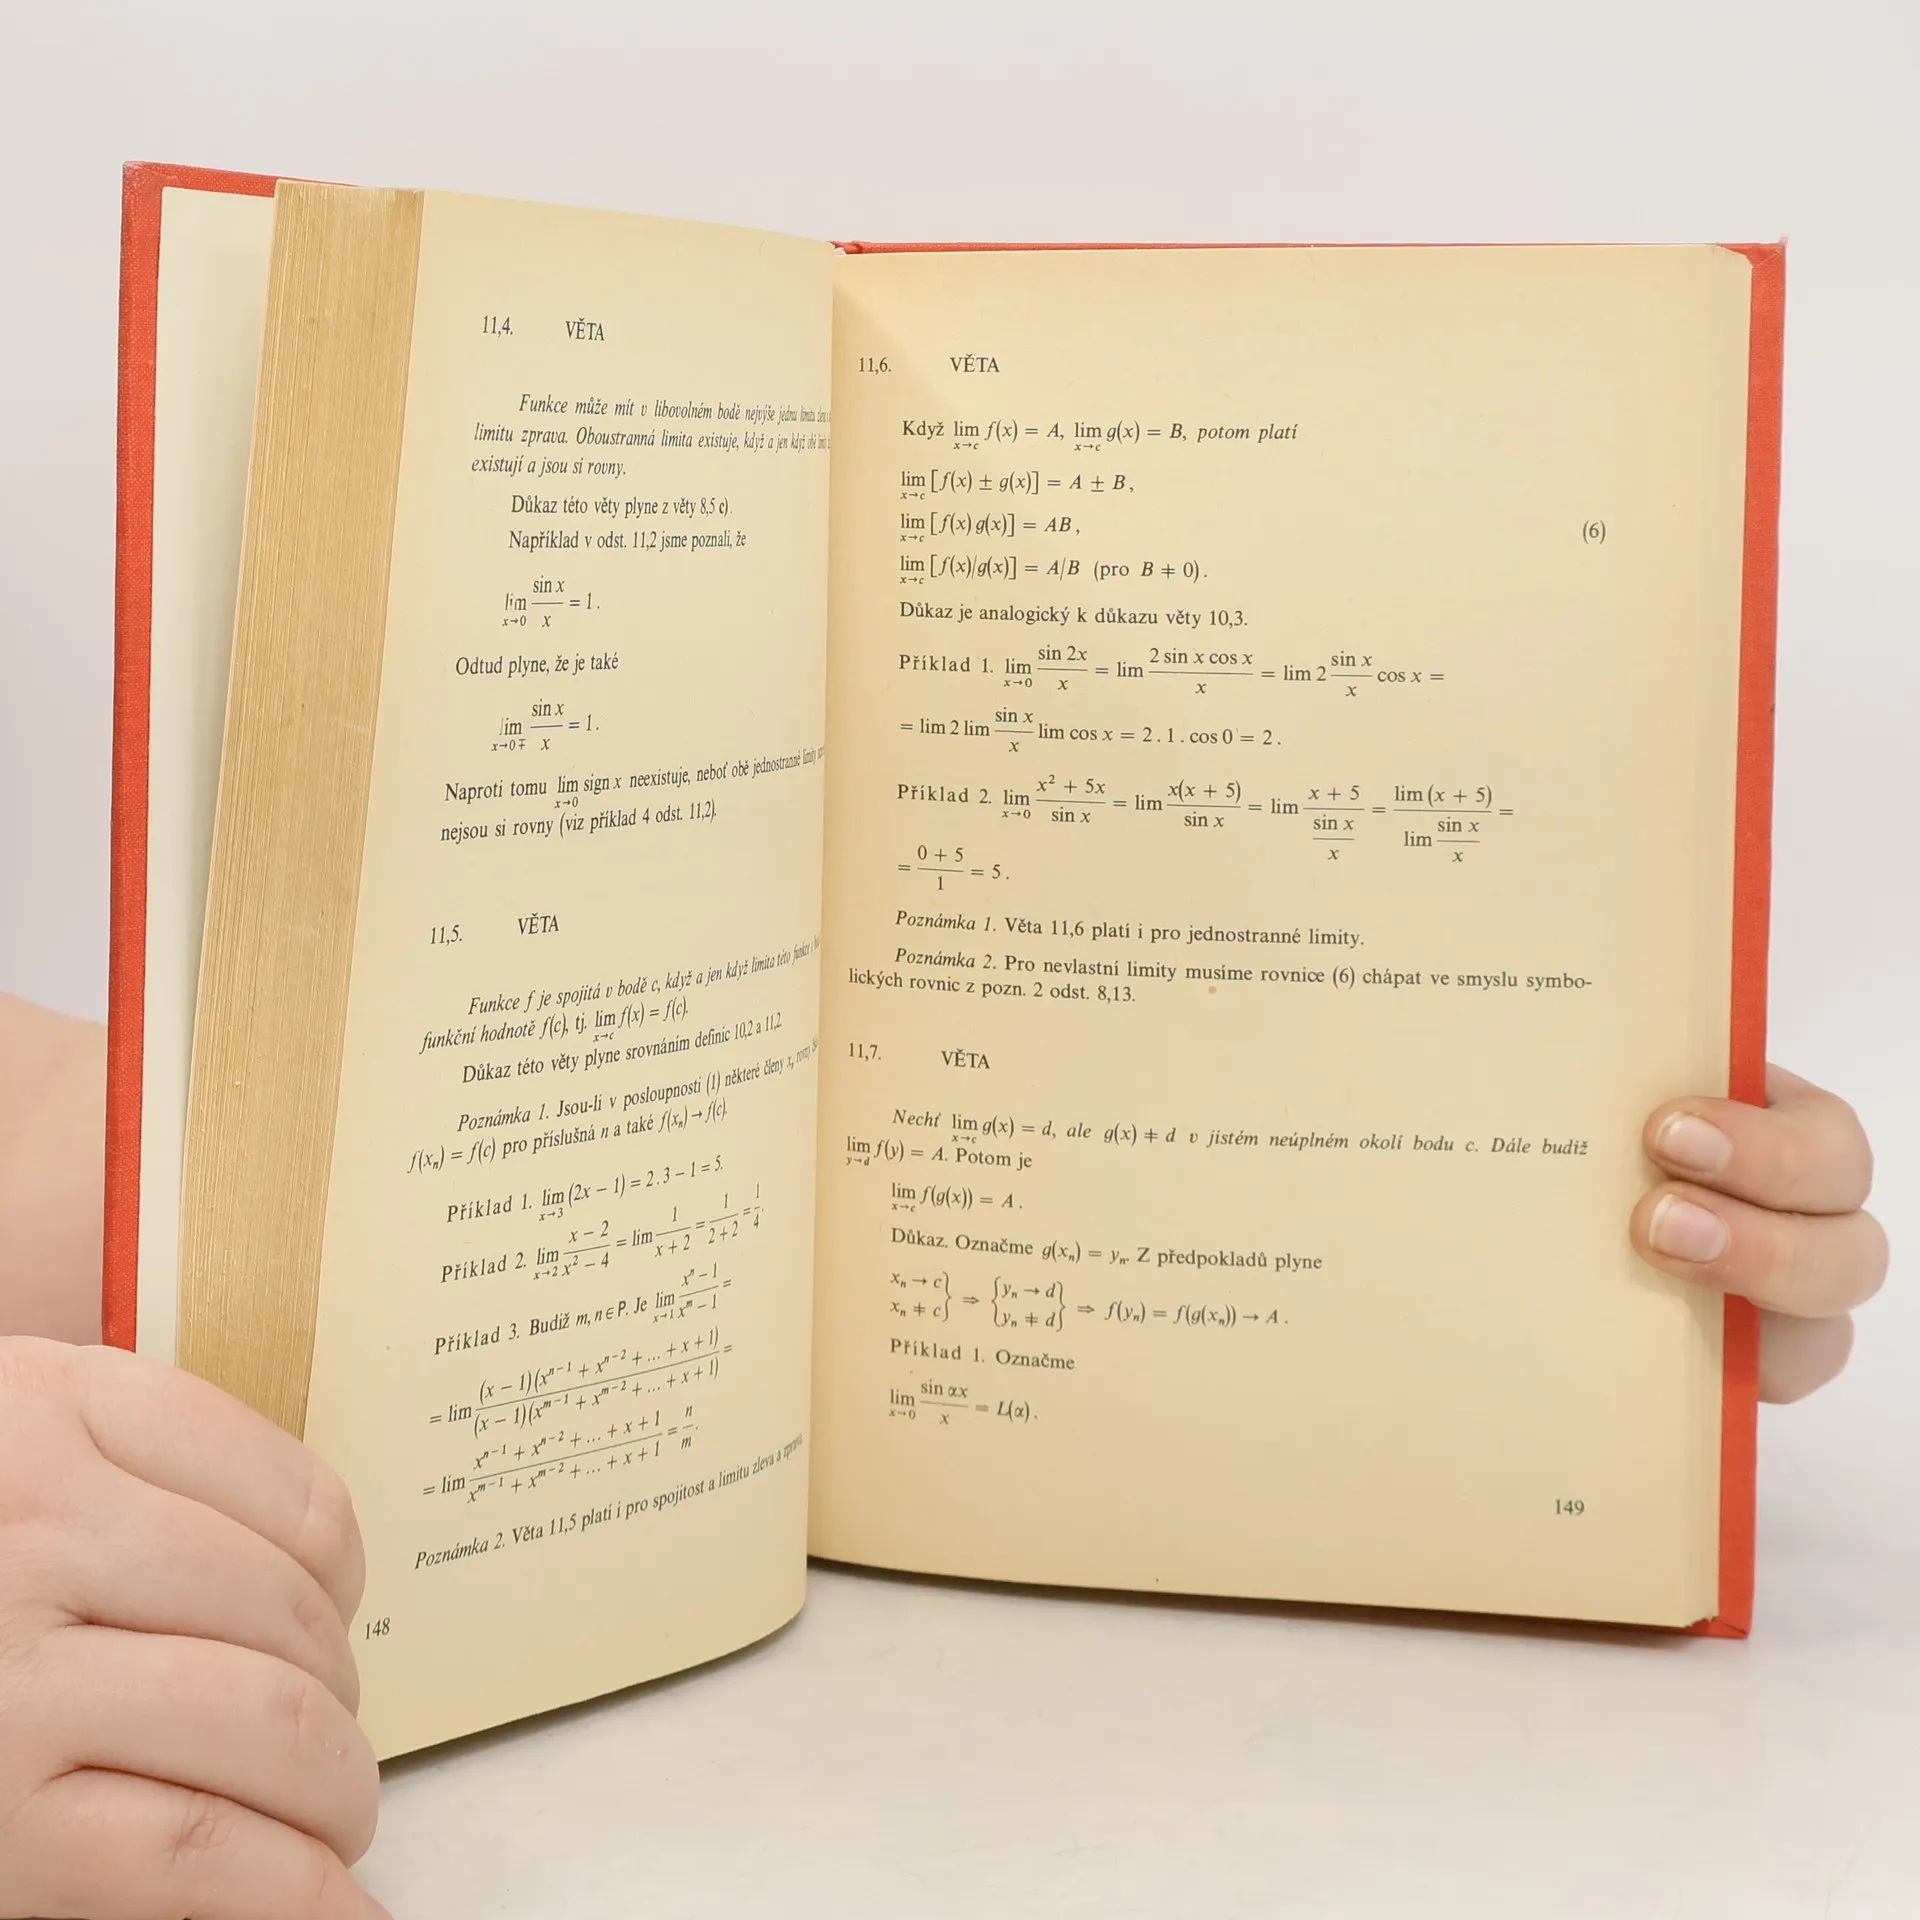 11,4. VĚTA
Funkce může mít v libovolném bodě nejvýše jednu limitu
limitu zprava. Oboustranná limita existuje, když a jen když obě
existují a jsou si rovny.
Důkaz této věty plyne z věty 8,5 c).
Například v odst. 11,2 jsme poznali, že
lim_{x→0} sin x / x = 1.
Odtud plyne, že je také
lim_{x→0∓} sin x / x = 1.
Naproti tomu lim_{x→0} sign x neexistuje, neboť obě jednostranné limity
nejsou si rovny (viz příklad 4 odst. 11,2).
11,5. VĚTA
Funkce f je spojitá v bodě c, když a jen když limita této funkce
funkční hodnotě f(c), tj. lim_{x→c} f(x) = f(c).
Důkaz této věty plyne srovnáním definic 10,2 a 11,2.
Poznámka 1. Jsou-li v posloupnosti (1) některé členy xₙ rovny
f(xₙ) = f(c) pro příslušná n a také f(xₙ) → f(c).
Příklad 1. lim_{x→3} (2x − 1) = 2 . 3 − 1 = 5.
Příklad 2. lim_{x→2} (x − 2)/(x² − 4) = lim 1/(x + 2) = 1/(2 + 2) = 1/4.
Příklad 3. Budiž m, n ∈ P. Je lim_{x→1} (xⁿ − 1)/(xᵐ − 1) =
= lim (x − 1)(xⁿ⁻¹ + xⁿ⁻² + ... + x + 1) / (x − 1)(xᵐ⁻¹ + xᵐ⁻² + ... + x + 1) =
= lim (xⁿ⁻¹ + xⁿ⁻² + ... + x + 1)/(xᵐ⁻¹ + xᵐ⁻² + ... + x + 1) = n/m.
Poznámka 2. Věta 11,5 platí i pro spojitost a limitu zleva a zprava.
148
11,6. VĚTA
Když lim_{x→c} f(x) = A, lim_{x→c} g(x) = B, potom platí
lim_{x→c} [f(x) ± g(x)] = A ± B,
lim_{x→c} [f(x) g(x)] = AB, (6)
lim_{x→c} [f(x)/g(x)] = A/B (pro B ≠ 0).
Důkaz je analogický k důkazu věty 10,3.
Příklad 1. lim_{x→0} sin 2x / x = lim 2 sin x cos x / x = lim 2 sin x / x cos x =
= lim 2 lim sin x / x lim cos x = 2 . 1 . cos 0 = 2.
Příklad 2. lim_{x→0} (x² + 5x)/sin x = lim x(x + 5)/sin x = lim (x + 5)/(sin x / x) = lim (x + 5)/(lim sin x / x) =
= (0 + 5)/1 = 5.
Poznámka 1. Věta 11,6 platí i pro jednostranné limity.
Poznámka 2. Pro nevlastní limity musíme rovnice (6) chápat ve smyslu symbo-
lických rovnic z pozn. 2 odst. 8,13.
11,7. VĚTA
Nechť lim_{x→c} g(x) = d, ale g(x) ≠ d v jistém neúplném okolí bodu c. Dále budiž
lim_{y→d} f(y) = A. Potom je
lim_{x→c} f(g(x)) = A.
Důkaz. Označme g(xₙ) = yₙ. Z předpokladů plyne
xₙ → c } ⇒ { yₙ → d } ⇒ f(yₙ) = f(g(xₙ)) → A.
xₙ ≠ c } { yₙ ≠ d }
Příklad 1. Označme
lim_{x→0} sin αx / x = L(α).
149